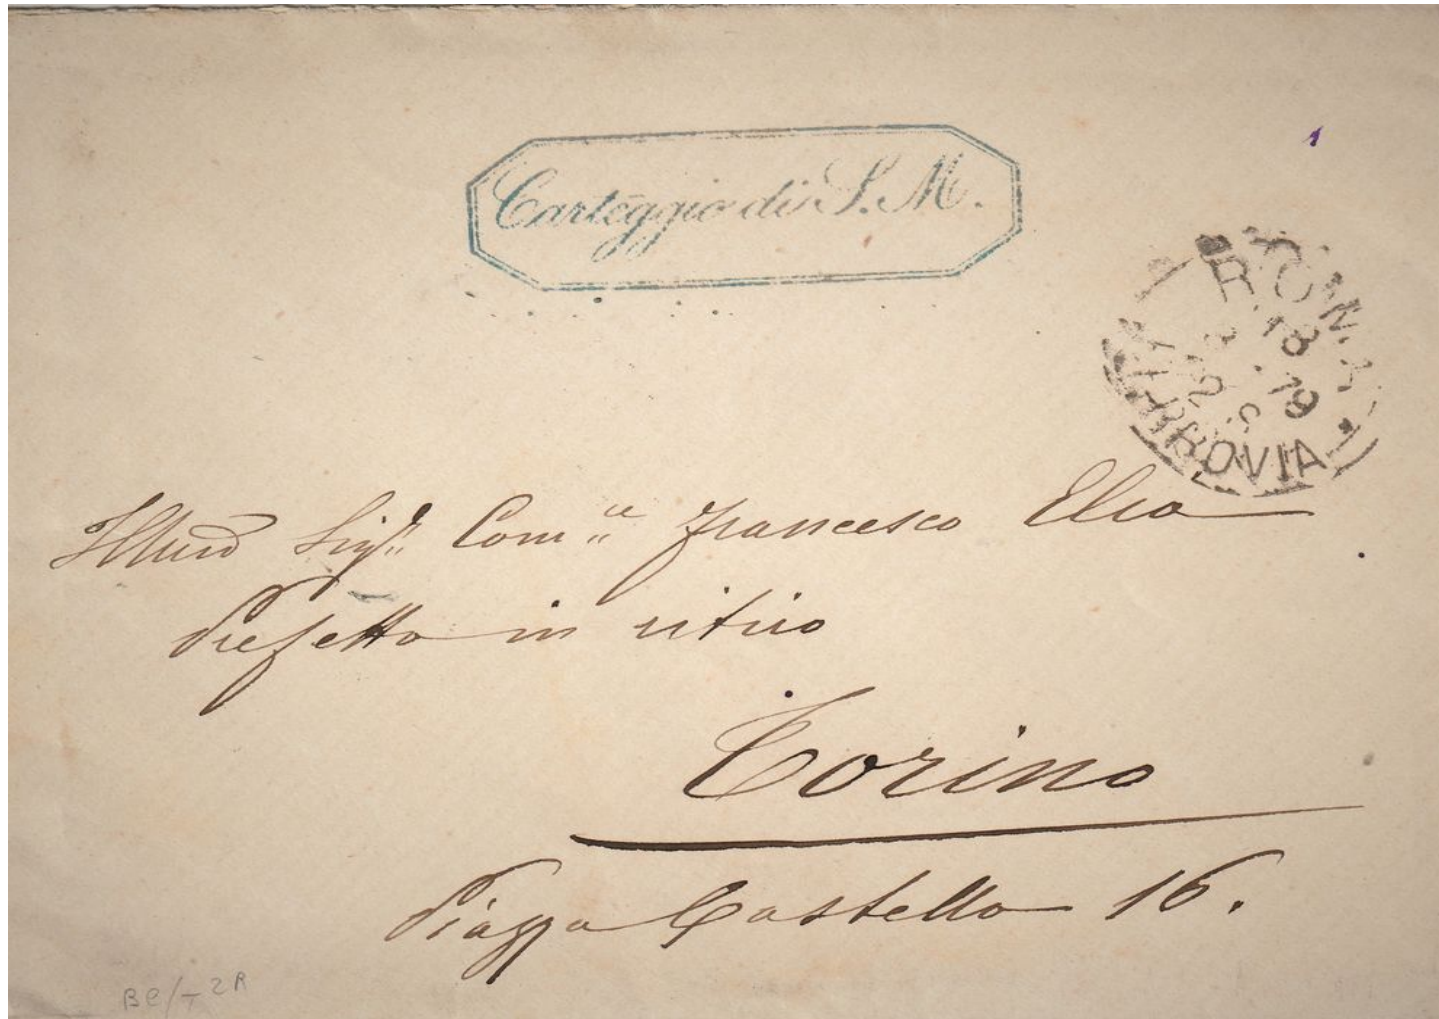 Carteggio di S. M.
ROMA
18
79
2 S
FERROVIA
Illmo Sigr Comm Francesco Elia
Prefetto in ritiro
Torino
Piazza Castello 16.